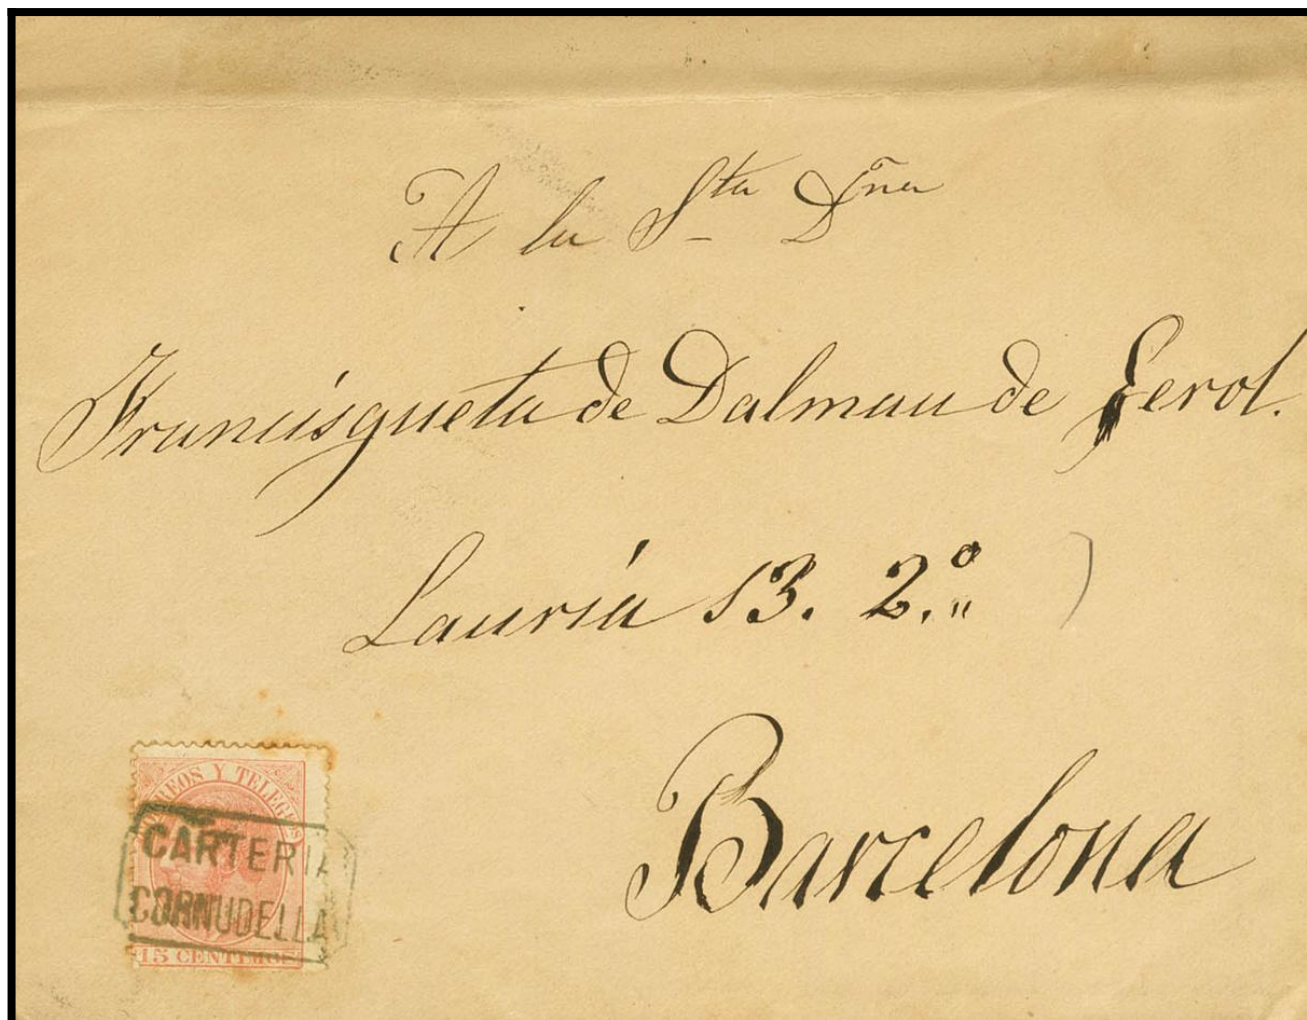 A la Sta Dña
Francisqueta de Dalmau de
Lauria 13. 2.º
Barcelona
CORREOS Y TELEGFS
CARTERIA
CORNUDELLA
15 CENTIMOS